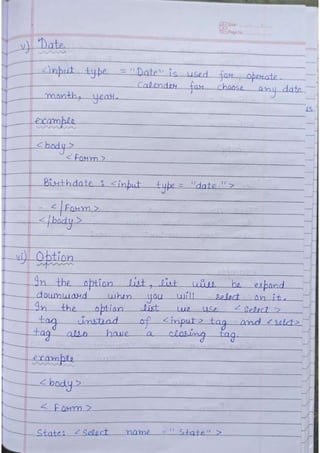 Date
Page No.
v) Date
<input type = "Date" is used for operate.
Calender for choose any date,
month, year.
example
<body>
<Form>
Birthdate : <input type = "date">
</Form>
</body>
vi) Option
In the option list, list will be expand
downward when you will select on it.
In the option list we use <select>
tag instead of <input> tag and <select>
tag also have a closing tag.
example
<body>
<Form>
State: <select name = "State">